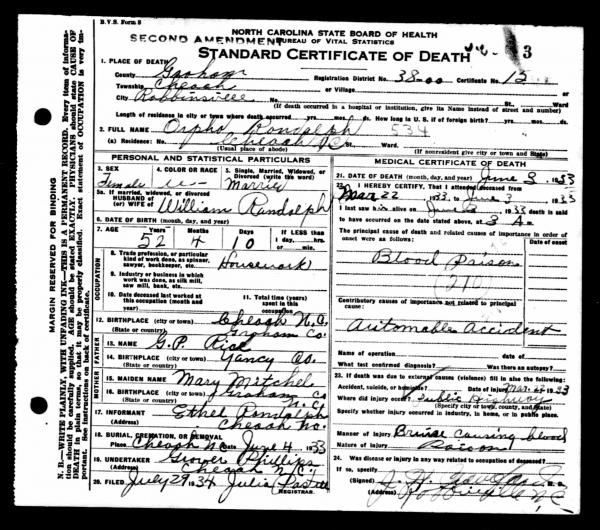 B.V.S. Form 8
NORTH CAROLINA STATE BOARD OF HEALTH
SECOND AMENDMENT BUREAU OF VITAL STATISTICS
STANDARD CERTIFICATE OF DEATH 3
1. PLACE OF DEATH
County Graham Registration District No. 38-00 Certificate No. 12
Township Cheoah or Village
City Robbinsville No. St. Ward
(If death occurred in a hospital or institution, give its Name instead of street and number)
Length of residence in city or town where death occurred yrs. mos. ds. How long in U. S. if of foreign birth? yrs. mos. ds.
2. FULL NAME Orpho Randolph 534
(a) Residence: No. Cheoah N.C. St. Ward
(Usual place of abode) (If nonresident give city or town and State)
PERSONAL AND STATISTICAL PARTICULARS
3. SEX Female
4. COLOR OR RACE
5. Single, Married, Widowed, or Divorced (write the word)
Married
5a. If married, widowed, or divorced
HUSBAND of
(or) WIFE of William Randolph
6. DATE OF BIRTH (month, day, and year)
7. AGE Years Months Days If LESS than
52 4 10 1 day, hrs.
or min.
OCCUPATION
8. Trade, profession, or particular kind of work done, as spinner, sawyer, bookkeeper, etc. Housework
9. Industry or business in which work was done, as silk mill, saw mill, bank, etc.
10. Date deceased last worked at this occupation (month and year)
11. Total time (years) spent in this occupation
12. BIRTHPLACE (city or town) Cheoah N.C.
(State or country) Graham Co.
FATHER
13. NAME G.P. Rice
14. BIRTHPLACE (city or town) Yancy Co.
(State or country)
MOTHER
15. MAIDEN NAME Mary Mitchel
16. BIRTHPLACE (city or town) Graham Co
(State or country) N.C.
17. INFORMANT Ethel Randolph
(Address) Cheoah N.C.
18. BURIAL, CREMATION, OR REMOVAL
Place Cheoah N.C. Date June 4 1933
19. UNDERTAKER Grover Phillips
(Address) Cheoah N.C.
20. FILED July 29 1934 Julia
REGISTRAR.
MEDICAL CERTIFICATE OF DEATH
21. DATE OF DEATH (month, day, and year) June 3 1933
22. I HEREBY CERTIFY, That I attended deceased from
Mar 22 1933, to June 3 1933
I last saw h alive on June 1933 death is said
to have occurred on the date stated above, at
The principal cause of death and related causes of importance in order of onset were as follows:
Date of onset
Blood Poison
210
Contributory causes of importance not related to principal cause:
Automable Accident
Name of operation Date of
What test confirmed diagnosis? Was there an autopsy?
23. If death was due to external causes (violence) fill in also the following:
Accident, suicide, or homicide? Date of injury Mar. 1933
Where did injury occur? Public Highway
(Specify city or town, county, and State)
Specify whether injury occurred in industry, in home, or in public place.
Manner of injury Bruise causing blood
Nature of injury Poison
24. Was disease or injury in any way related to occupation of deceased?
If so, specify
(Signed) M.D.
(Address) Robbinsville N.C.
MARGIN RESERVED FOR BINDING
N. B.—WRITE PLAINLY, WITH UNFADING INK—THIS IS A PERMANENT RECORD. Every item of information should be carefully supplied. AGE should be stated EXACTLY. PHYSICIANS should state CAUSE OF DEATH in plain terms, so that it may be properly classified. Exact statement of OCCUPATION is very important. See instructions on back of certificate.